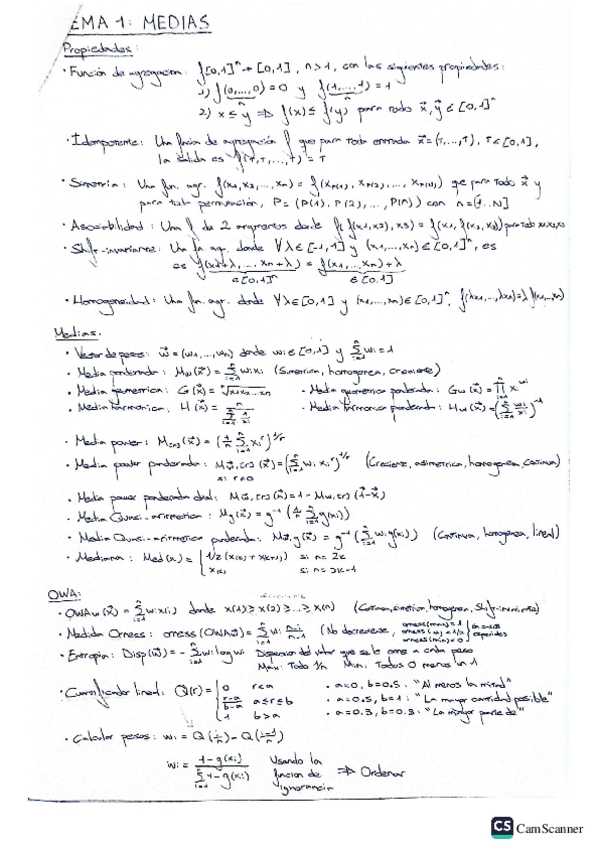 EMA 1: MEDIAS
Propiedades:
· Función de agregacion: f[0,1]ⁿ → [0,1], n>1, con las siguientes propiedades:
1) f(0,...,0) = 0 y f(1,...,1) = 1
2) x ≤ y ⇒ f(x) ≤ f(y) para todo x⃗, y⃗ ∈ [0,1]ⁿ
· Idempotente: Una función de agregación f que para toda entrada x⃗ = (T,...,T), T ∈ [0,1],
la salida es f(T,T,...,T) = T
· Simetría: Una fun. agr. f(x1, x2, ..., xn) = f(xP(1), xP(2), ..., xP(n)) que para todo x⃗ y
para toda permutación, P = (P(1), P(2), ..., P(n)) con n = [1..N]
· Asociatividad: Una f de 2 argumentos donde f(f(x1,x2),x3) = f(x1,f(x2,x3)) para todo x1,x2,x3
· Shift-invarianza: Una fn. agr. donde ∀λ ∈ [-1,1] y (x1,...,xn) ∈ [0,1]ⁿ, es
es f(x1+λ, ..., xn+λ) = f(x1,...,xn)+λ
∈ [0,1]ⁿ ∈ [0,1]
· Homogeneidad: Una fn. agr. donde ∀λ ∈ [0,1] y (x1,...,xn) ∈ [0,1]ⁿ, f(λx1,...,λxn) = λ f(x1,...,xn)
Medias:
· Vector de pesos: w⃗ = (w1,...,wn) donde wi ∈ [0,1] y Σ wi = 1
· Media ponderada: Mw(x⃗) = Σ wi xi (Simetrica, homogenea, creciente)
· Media geometrica: G(x⃗) = ⁿ√x1x2...xn · Media geometrica ponderada: Gw(x⃗) = Π x^wi
· Media harmonica: H(x⃗) = n / Σ 1/xi · Media harmonica ponderada: Hw(x⃗) = (Σ wi/xi)⁻¹
· Media power: M[r](x⃗) = (1/n Σ xi^r)^1/r
· Media power ponderada: Mw⃗,[r](x⃗) = (Σ wi xi^r)^1/r (Creciente, asimetrica, homogenea, continua)
si r≠0
· Media power ponderada dual: Mw⃗,[r](x⃗) = 1 - Mw,[r](1⃗-x⃗)
· Media Quasi-aritmetica: Mg(x⃗) = g⁻¹(1/n Σ g(xi))
· Media Quasi-aritmetica ponderada: Mw⃗,g(x⃗) = g⁻¹(Σ wi g(xi)) (Continua, homogenea, lineal)
· Mediana: Med(x) = { 1/2 (x(k) + x(k+1)) si n = 2k
x(k) si n = 2k-1
OWA:
· OWAw(x⃗) = Σ wi x(i) donde x(1) ≥ x(2) ≥ ... ≥ x(n) (Continua, simetrica, homogenea, Shift-invariante)
· Medida Orness: orness(OWAw⃗) = Σ wi n-i/n-1 (No decreciente, orness(max) = 1 orness(M) = 1/2 orness(min) = 0
· Entropia: Disp(w⃗) = - Σ wi log wi Dispersion del valor que se le pone a cada peso
Max: Todo 1/n Min: Todos 0 menos un 1
· Cuantificador lineal: Q(r) = { 0 r<a · a=0, b=0.5: "Al menos la mitad"
r-a/b-a a≤r≤b · a=0.5, b=1: "La mayor cantidad posible"
1 b>a · a=0.3, b=0.8: "La mayor parte de"
· Calcular pesos: wi = Q(i/n) - Q(i-1/n)
wi = 1-g(xi) / Σ 1-g(xi) Usando la funcion de ignorancia ⇒ Ordenar
CS CamScanner